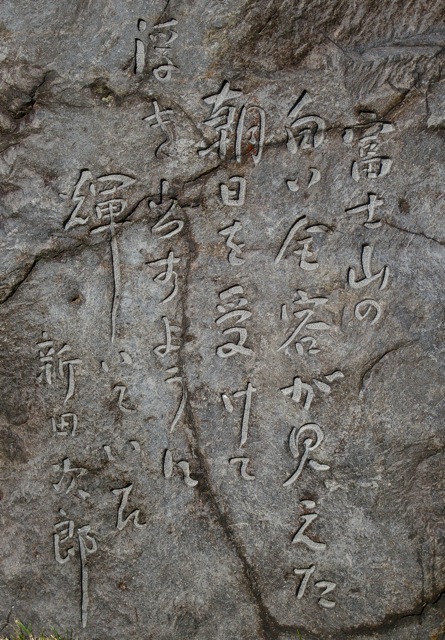 富士山の
白い全容が見えた
朝日を受けて
浮き出すように
輝いていた
新田次郎